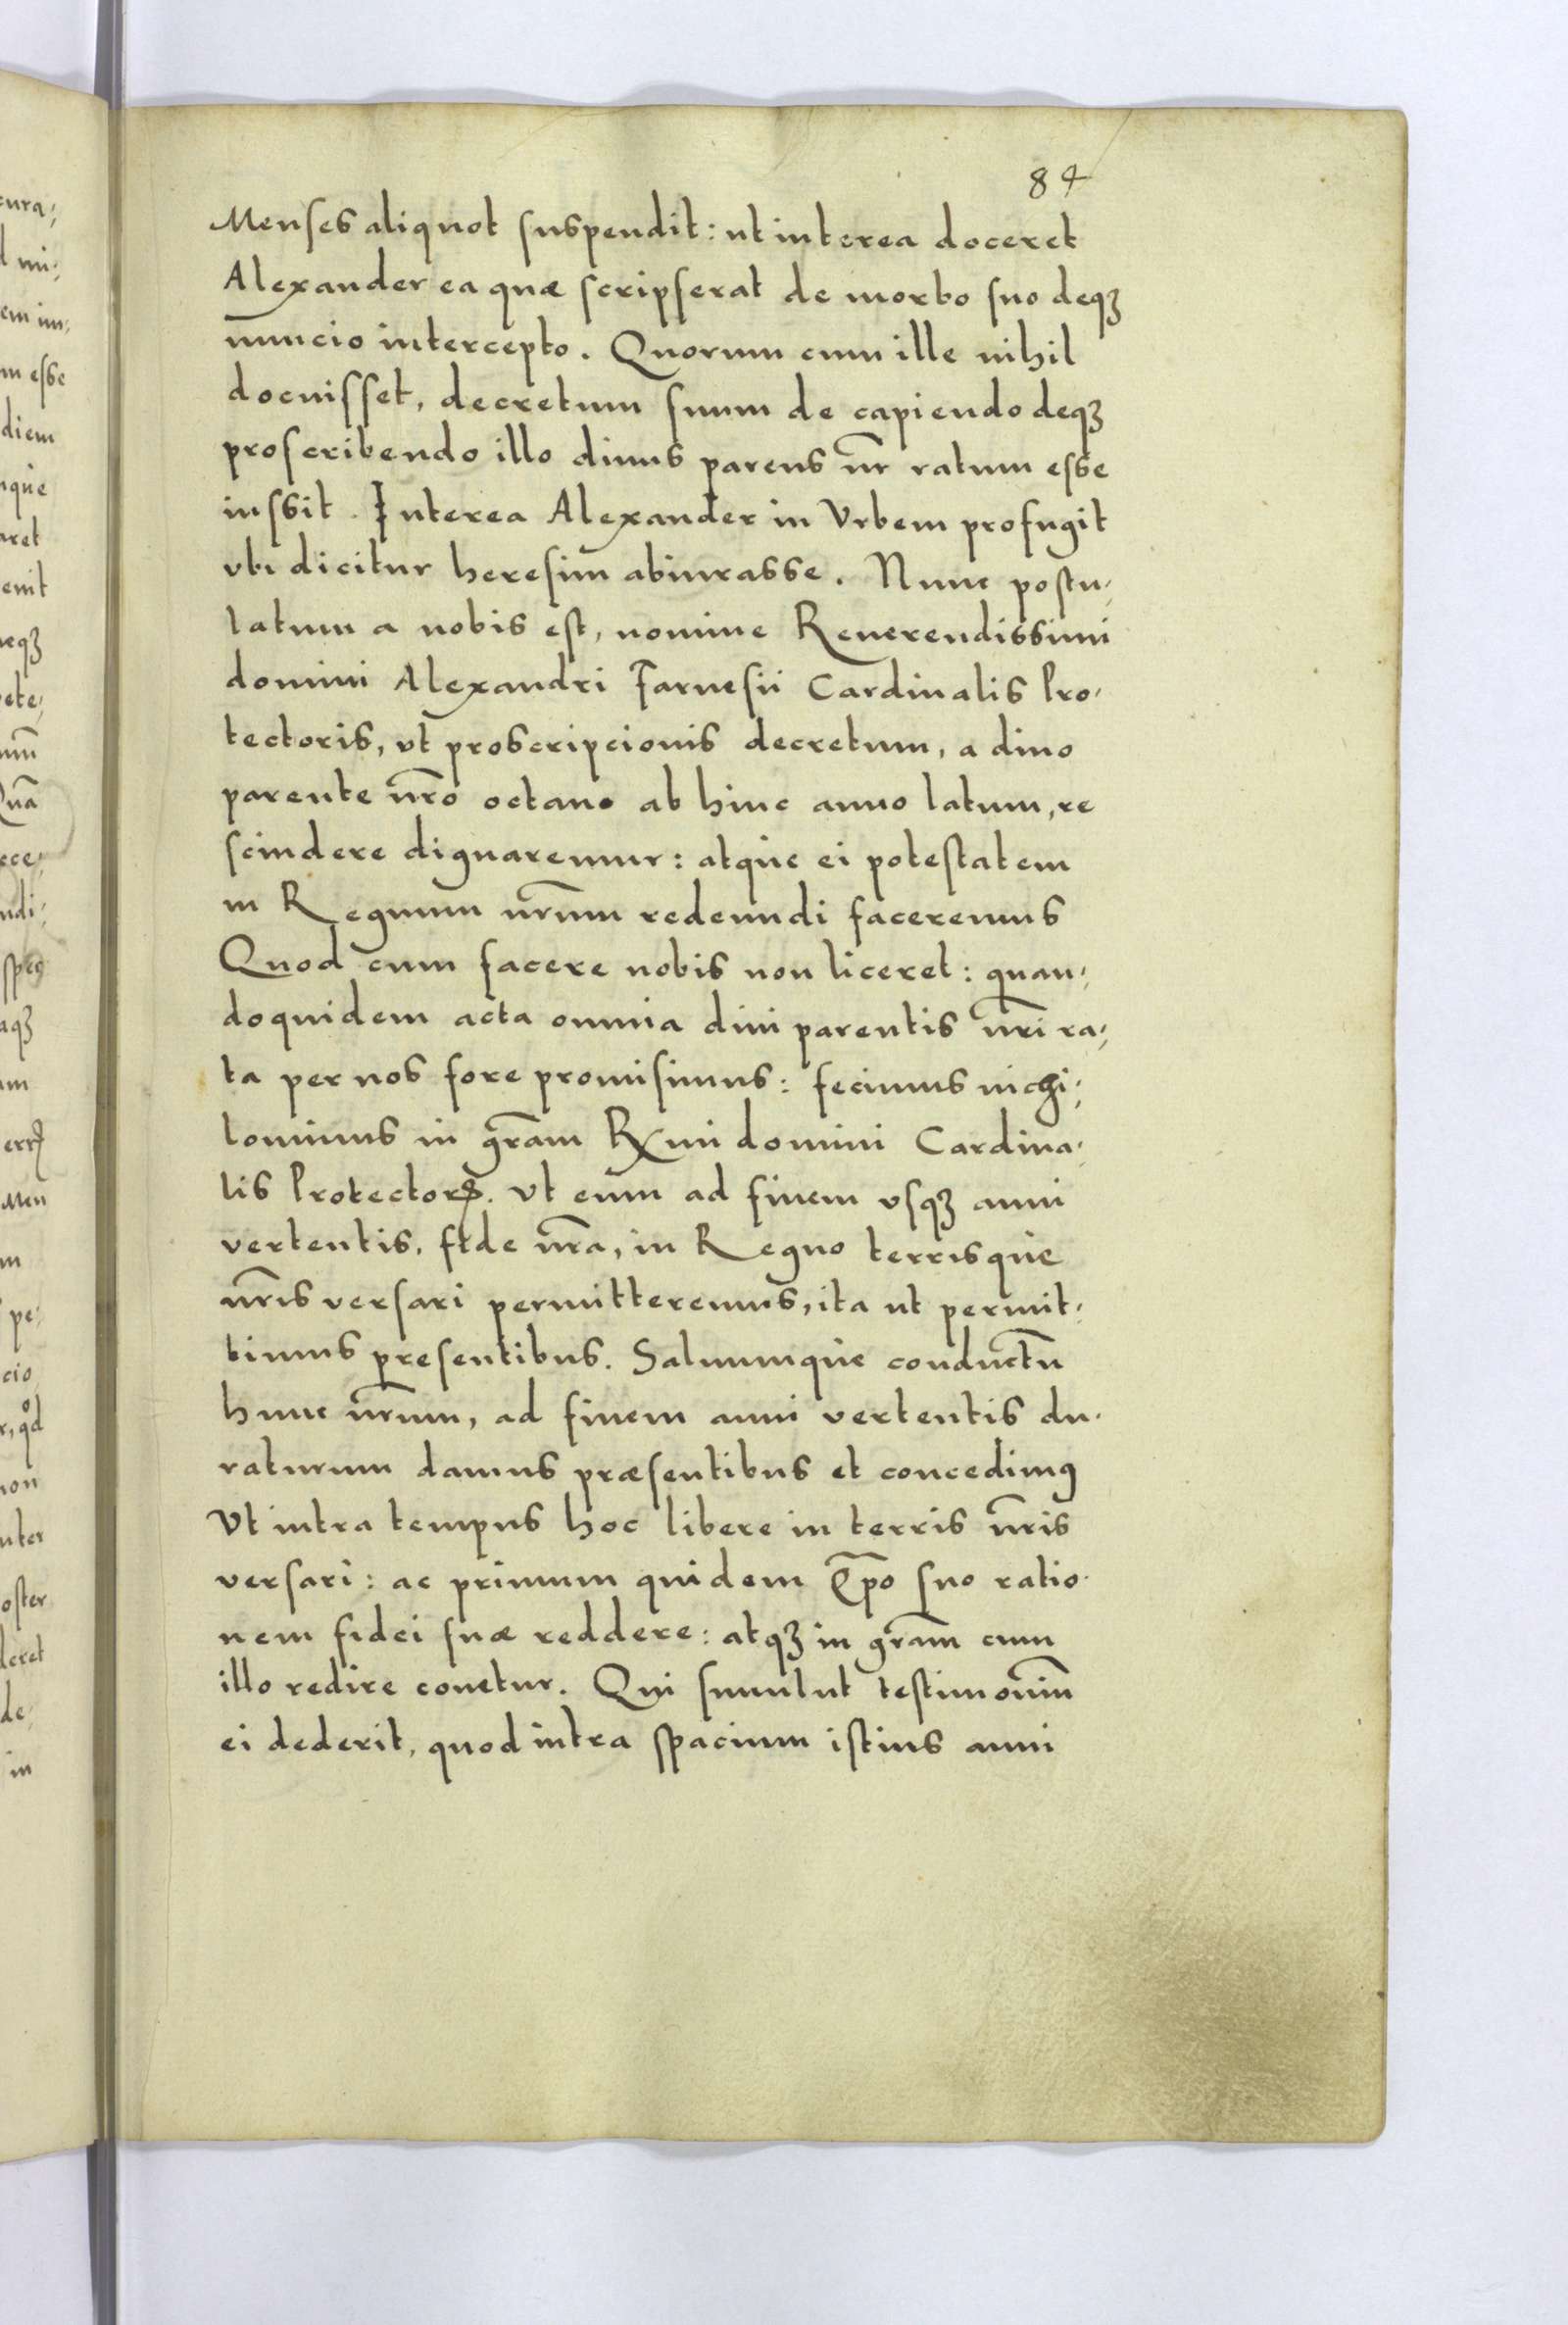 84
Menses aliquot suspendit: ut interea doceret
Alexander ea quæ scripserat de morbo suo deqꝫ
nuncio intercepto. Quorum cum ille nihil
docuisset, decretum suum de capiendo deqꝫ
proscribendo illo diuus parens nr̃ ratum esse
iussit. Interea Alexander in Vrbem profugit
vbi dicitur heresim abiurasse. Nunc postu-
latum a nobis est, nomine Reuerendissimi
domini Alexandri Farnesii Cardinalis Pro-
tectoris, vt proscripcionis decretum, a diuo
parente nr̃o octauo ab hinc anno latum, re
scindere dignaremur: atque ei potestatem
in Regnum nr̃um redeundi faceremus
Quod cum facere nobis non liceret: quan-
doquidem acta omnia diui parentis nr̃i ra-
ta per nos fore promisimus: fecimus nichi-
lominus in gr̃am Rx̃mi domini Cardina-
lis Protectoris. vt eum ad finem vsqꝫ anni
vertentis, fide nr̃a, in Regno terrisque
nr̃is versari permitteremus, ita ut permit-
timus presentibus. Saluumque conductũ
hunc nr̃um, ad finem anni vertentis du-
raturum damus præsentibus et concedimꝰ
Vt intra tempus hoc libere in terris nr̃is
versari: ac primum quidem Ep̃o suo ratio-
nem fidei suæ reddere: atqꝫ in gr̃am cum
illo redire conetur. Qui simulut testimoniũ
ei dederit, quod intra spacium istius anni
cura-
d mi-
em im-
m esse
diem
nque
aret
enit
neqꝫ
pete-
mũ
Quã
ndi-
aqꝫ
Men
m
pe-
cio
non
nter
oster
deret
de-
in